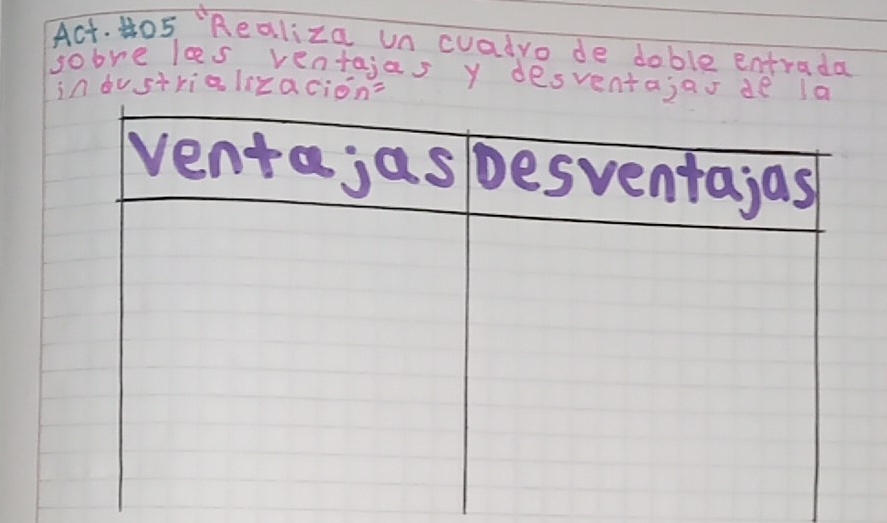 Act. #05 "Realiza un cuadro de doble entrada
sobre las ventajas y desventajas de la
industrialización"
Ventajas Desventajas